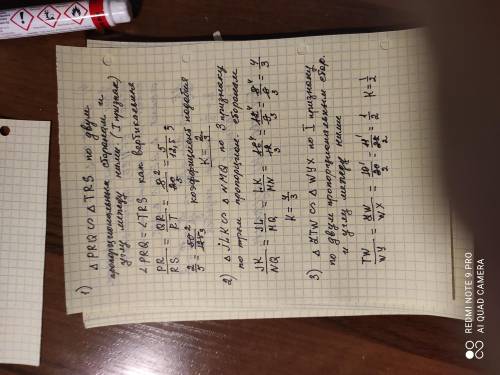 1) △PRQ ∽ △TRS по двум
пропорциональным сторонам и
углу между ними (I признак)
∠PRQ = ∠TRS как вертикальные
PR/RS = QR/RT = 8²/20₅ = 5/12,5
2/5 = 50²/125₅ коэффициент подобия
2) △JLK ∽ △NMQ по 3 признаку
по трем пропорцион. сторонам
JK/NQ = JL/MQ = LK/MN = 16⁴/12₃ = 12⁴/9₃ = 8⁴/6₃ = 4/3
K = 4/3
3) △LTW ∽ △WYX по I признаку
по двум пропорциональным стор.
и углу между ними
TW/WY = LW/WX = 10¹/20₂ = 11¹/22₂ = 1/2 K = 1/2
REDMI NOTE 9 PRO
AI QUAD CAMERA